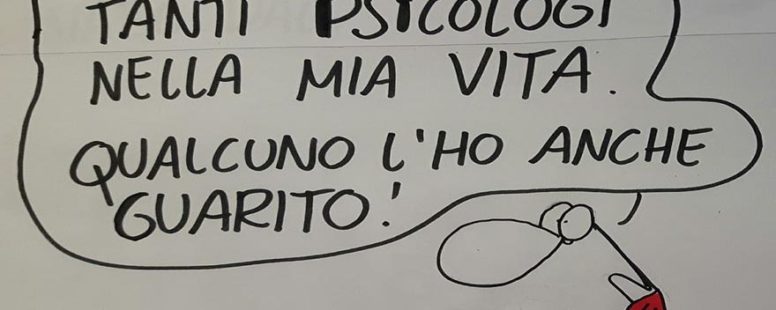 TANTI PSICOLOGI
NELLA MIA VITA.
QUALCUNO L'HO ANCHE
GUARITO!